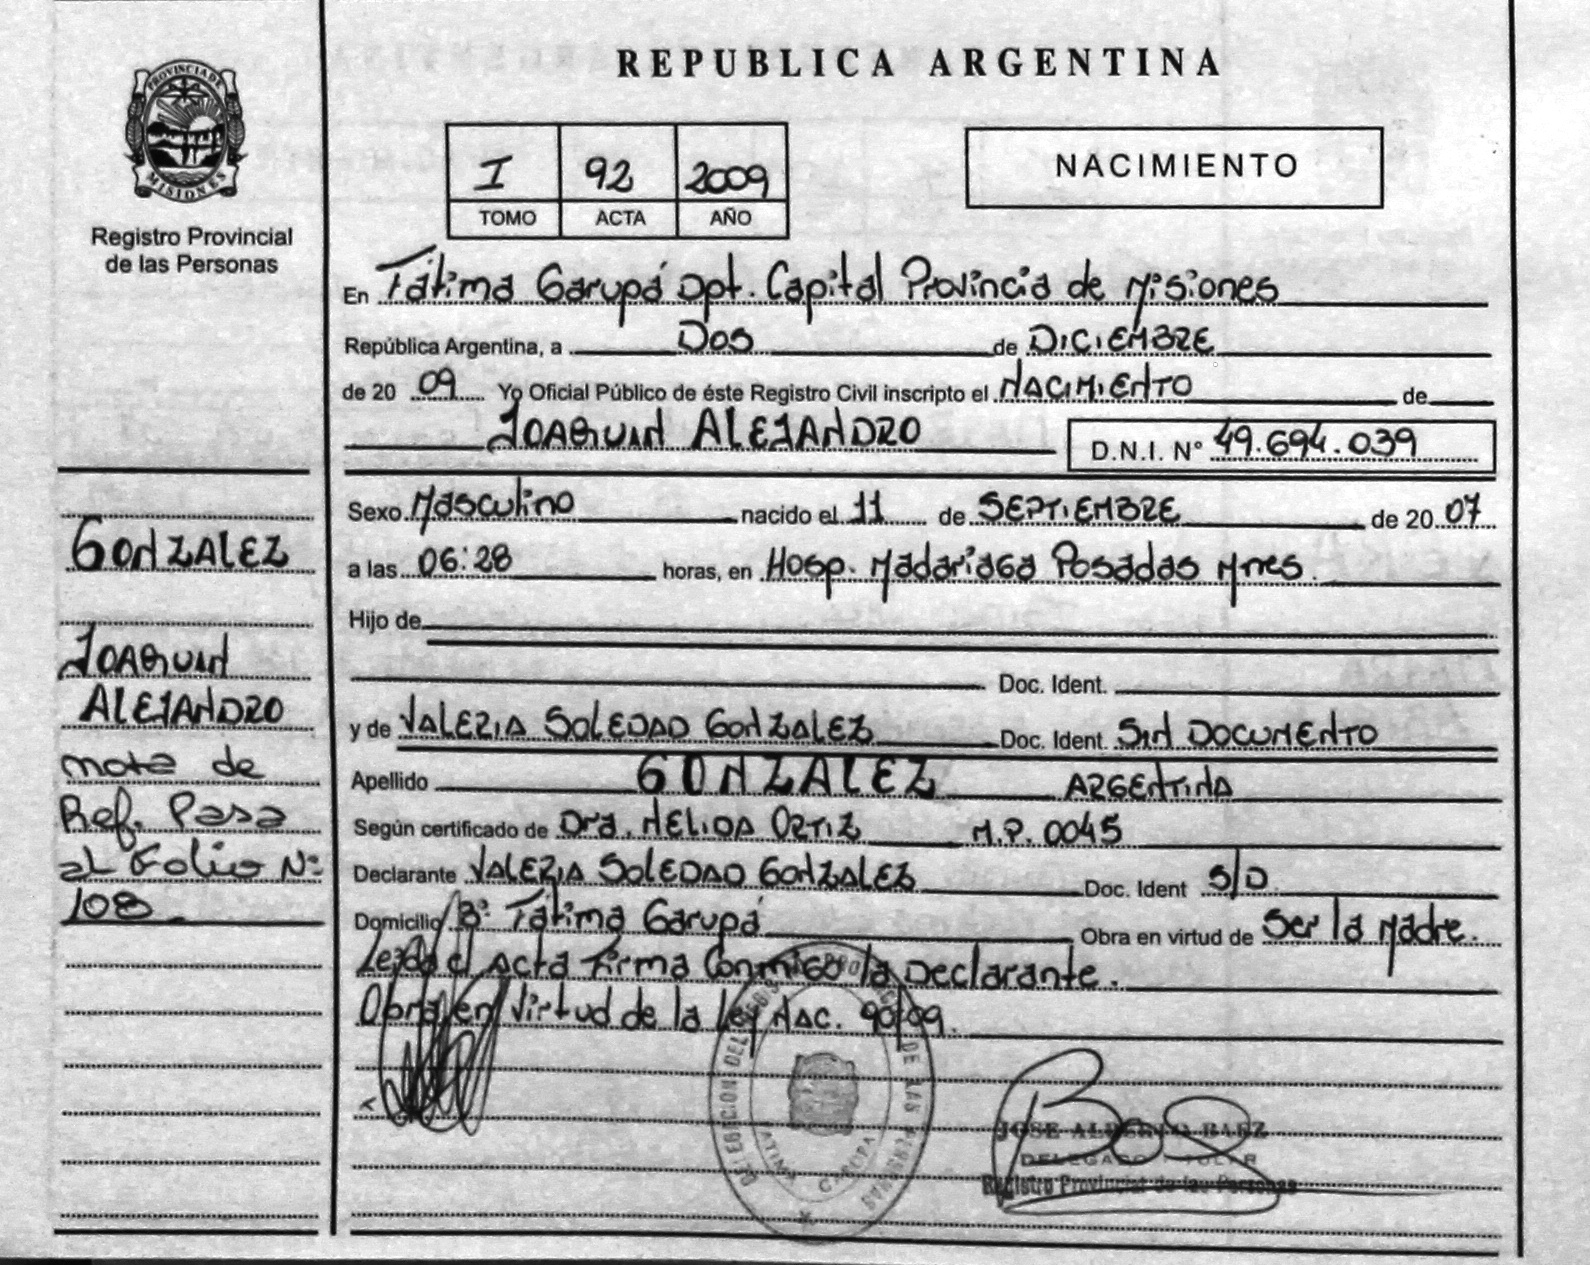 REPUBLICA ARGENTINA
PROVINCIA DE
MISIONES
Registro Provincial
de las Personas
I 92 2009
TOMO ACTA AÑO
NACIMIENTO
En Fátima Garupá Dpt. Capital Provincia de Misiones
República Argentina, a Dos de DICIEMBRE
de 20 09 Yo Oficial Público de éste Registro Civil inscripto el NACIMIENTO de
JOAQUIN ALEJANDRO D.N.I. N° 49.694.039
Sexo Masculino nacido el 11 de SEPTIEMBRE de 20 07
a las 06:28 horas, en Hosp. Madariaga Posadas Mnes.
Hijo de
Doc. Ident.
y de VALERIA SOLEDAD GONZALEZ Doc. Ident. SIN DOCUMENTO
Apellido GONZALEZ ARGENTINA
Según certificado de Dra. NELIDA ORTIZ M.P. 0045
Declarante VALERIA SOLEDAD GONZALEZ Doc. Ident S/D
Domicilio B° Fátima Garupá Obra en virtud de Ser la Madre.
Leída el Acta Firma Conmigo la Declarante.
Obra en Virtud de la Ley Nac. 90/09.
GONZALEZ
JOAQUIN
ALEJANDRO
nota de
Ref. Pasa
al Folio N°
108
DELEGACION DEL REGISTRO PROVINCIAL DE LAS PERSONAS
FATIMA GARUPA
JOSE ALBERTO BAEZ
DELEGADO TITULAR
Registro Provincial de las Personas